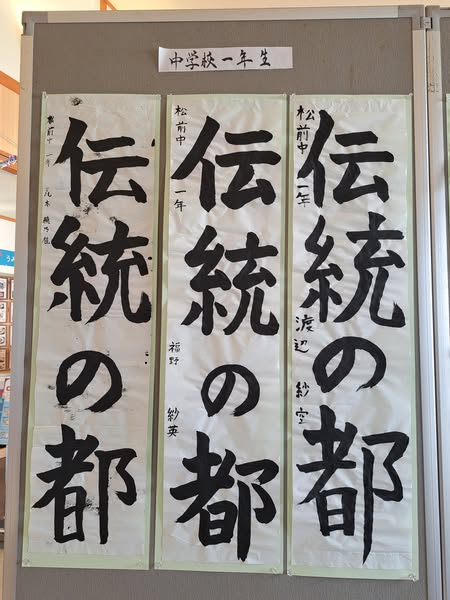 中学校一年生
伝統の都
松前中 一年 渡辺 紗空
伝統の都
松前中 一年 福野 紗英
伝統の都
松前中 一年